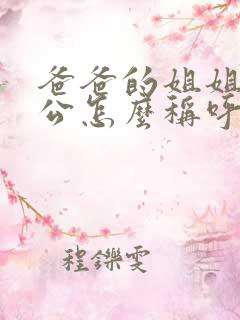 爸爸的姐姐
公怎麼稱呼
程鑠雯